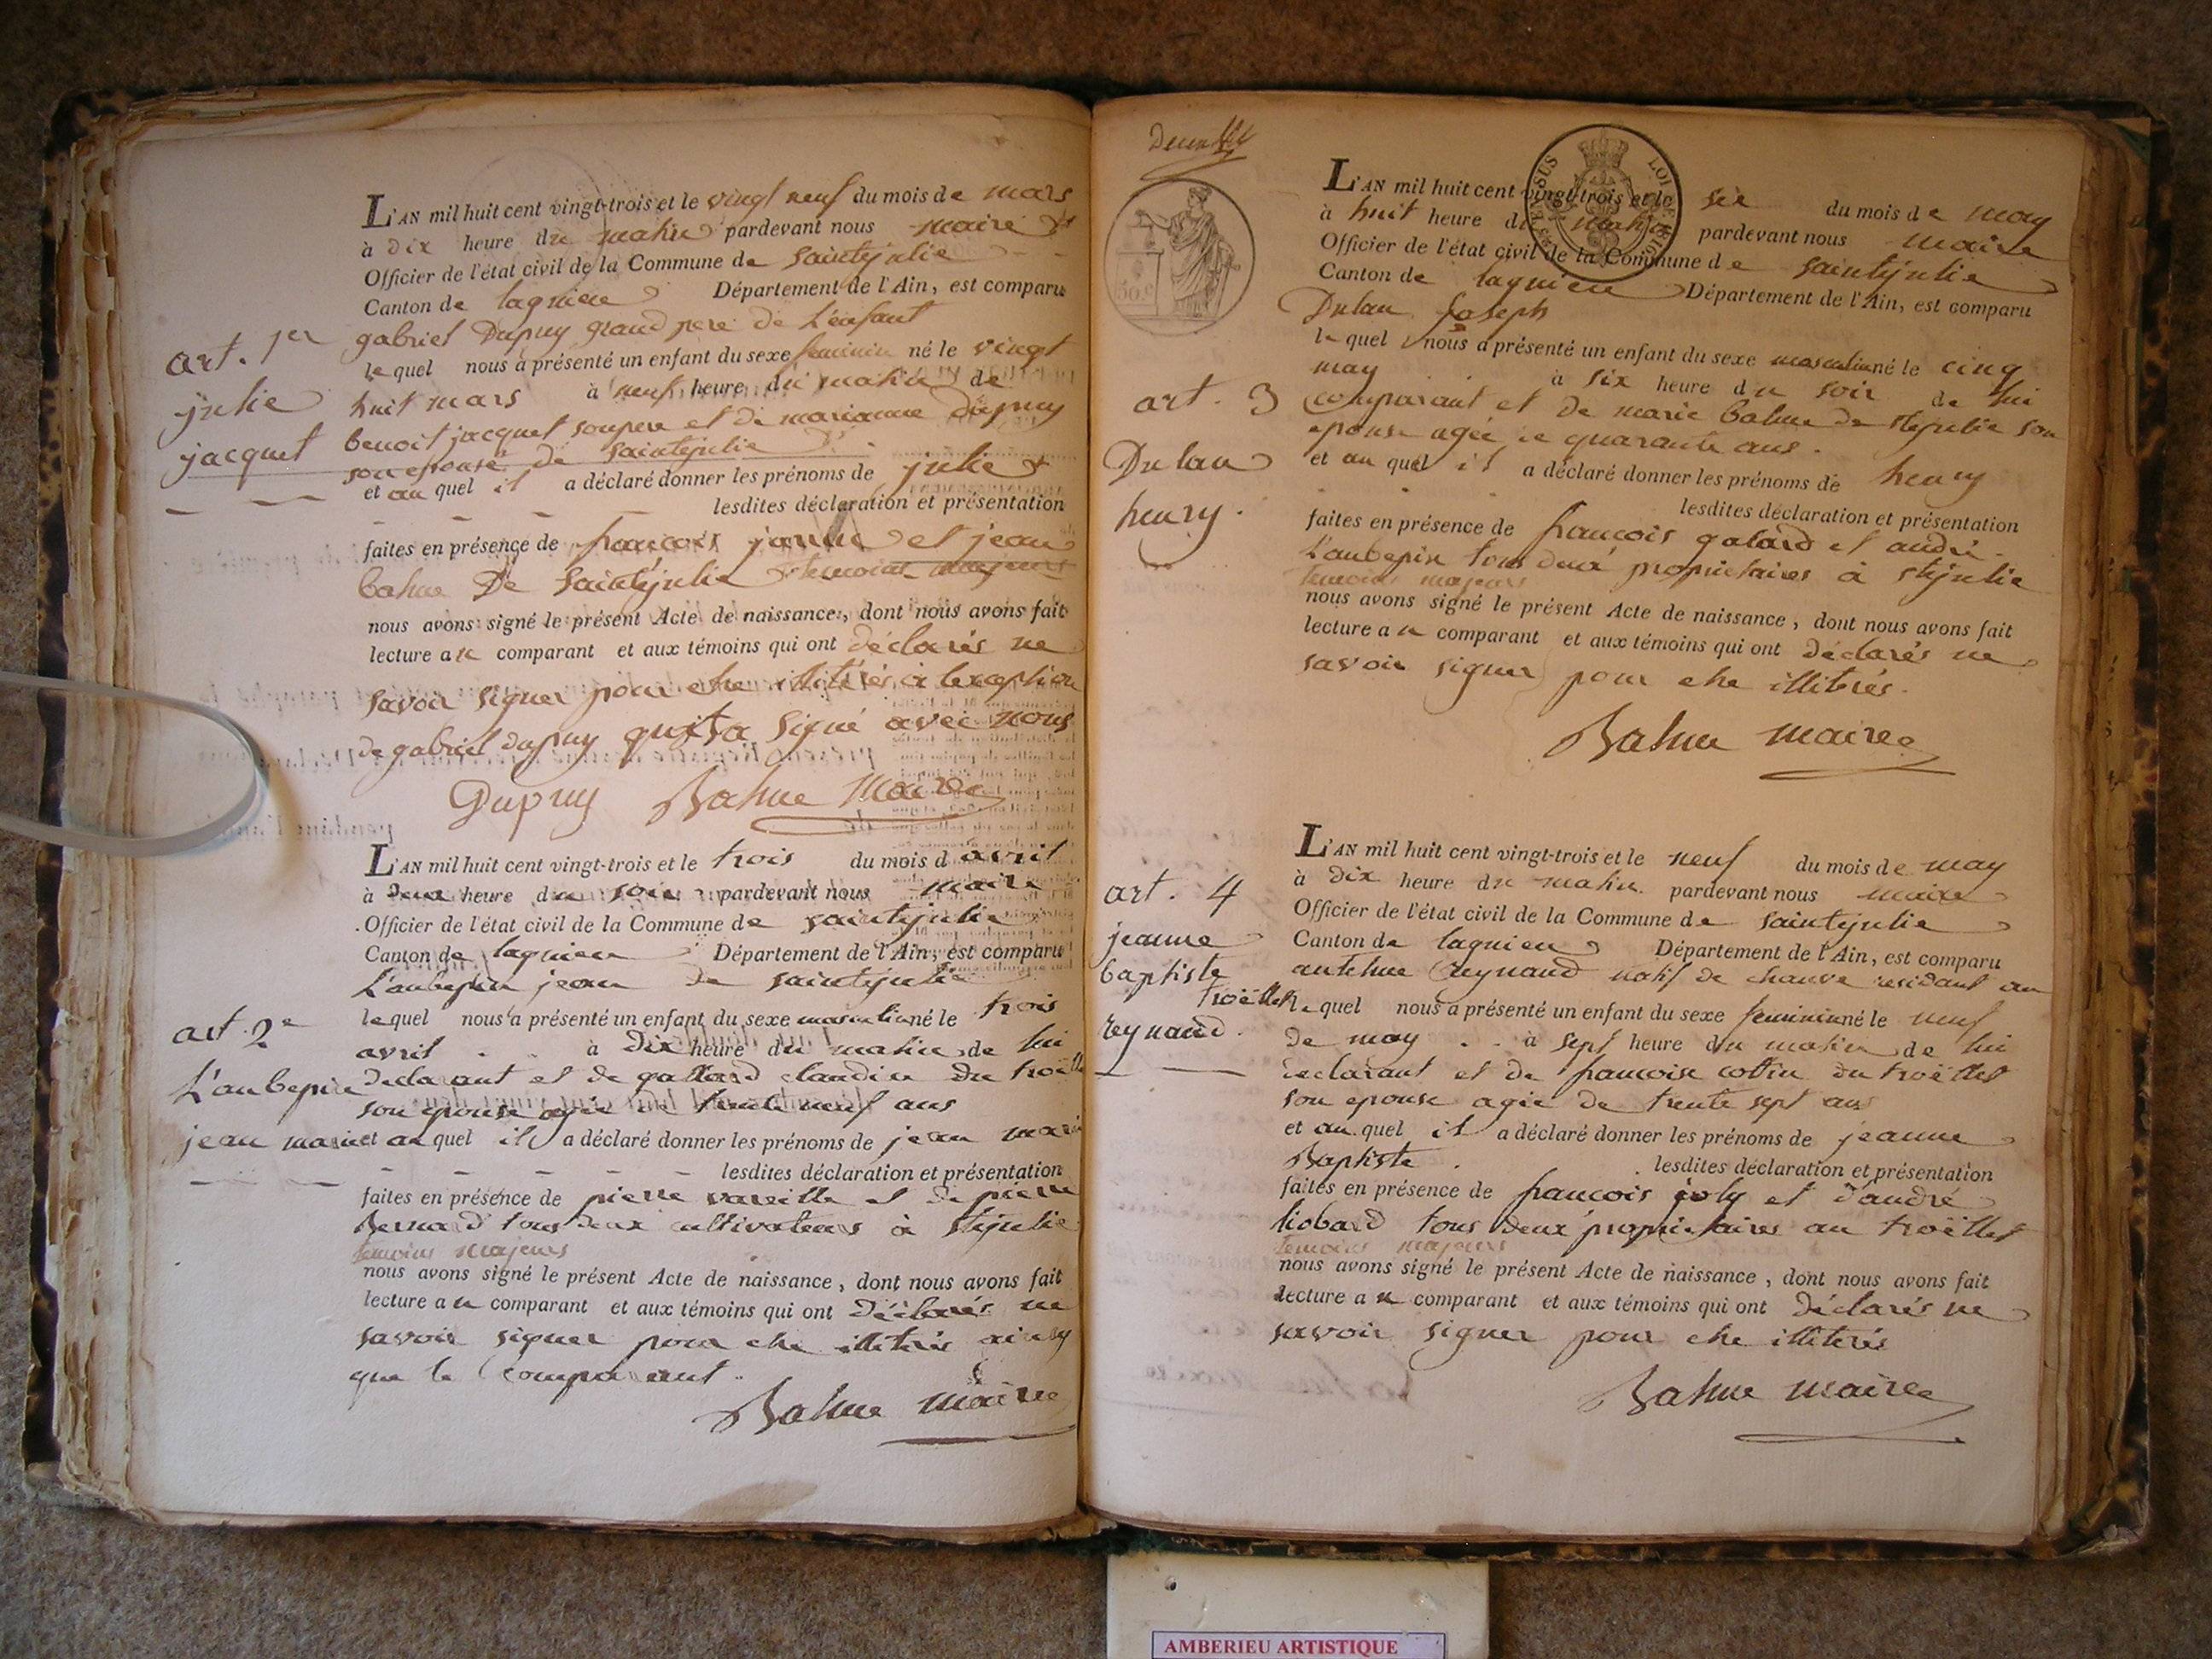 L'AN mil huit cent vingt-trois et le vingt neuf du mois de mars
à dix heure du matin pardevant nous maire &
Officier de l'état civil de la Commune de saintejulie
Canton de lagnieu Département de l'Ain, est comparu
gabriel Dupuy grand pere de L'enfant
art. 1er
le quel nous a présenté un enfant du sexe feminin né le vingt
julie
huit mars à neuf heure du matin de
jacquet
benoit jacquet son pere et de marianne dupuy
son epouse de saintejulie
et au quel il a déclaré donner les prénoms de julie
lesdites déclaration et présentation
faites en présence de francois et jean
bahue De Saintejulie temoins majeurs
nous avons signé le présent Acte de naissance, dont nous avons fait
lecture au comparant et aux témoins qui ont déclarés ne
savoir signer pour etre illitérés à lexception
de gabriel dupuy qui a signé avec nous
Dupuy Bahue maire
L'AN mil huit cent vingt-trois et le trois du mois d avril
à deux heure du soir pardevant nous maire
Officier de l'état civil de la Commune de saintejulie
Canton de lagnieu Département de l'Ain, est comparu
L'aubepin jean de saintejulie
art. 2e
le quel nous a présenté un enfant du sexe masculin né le trois
avril à dix heure du matin de lui
L'aubepin
declarant et de gallard claudine du troëllet
son epouse agée de trente neuf ans
jean marie
et au quel il a déclaré donner les prénoms de jean marie
lesdites déclaration et présentation
faites en présence de pierre vareille et de pierre
Bernard tous deux cultivateurs à stejulie
temoins majeurs
nous avons signé le présent Acte de naissance, dont nous avons fait
lecture au comparant et aux témoins qui ont déclarés ne
savoir signer pour etre illiterés ainsy
que le comparant.
Bahue maire
LOI DE 1816
50 c
L'AN mil huit cent vingt-trois et le six du mois de may
à huit heure du matin pardevant nous maire
Officier de l'état civil de la Commune de saintejulie
Canton de lagnieu Département de l'Ain, est comparu
Dulau Joseph
le quel nous a présenté un enfant du sexe masculin né le cinq
may à six heure du soir de lui
art. 3
comparant et de marie bahue de stejulie son
epouse agée de quarante ans.
Dulau
et au quel il a déclaré donner les prénoms de henry
henry.
lesdites déclaration et présentation
faites en présence de francois galard et andré
L'aubepin tous deux propriétaires à stejulie
temoins majeurs
nous avons signé le présent Acte de naissance, dont nous avons fait
lecture au comparant et aux témoins qui ont déclarés ne
savoir signer pour etre illiterés.
Bahue maire
L'AN mil huit cent vingt-trois et le neuf du mois de may
à dix heure du matin pardevant nous maire
art. 4
Officier de l'état civil de la Commune de saintejulie
jeanne
Canton de lagnieu Département de l'Ain, est comparu
baptiste
antehue reynaud natif de chauve residant au
troëllet
le quel nous a présenté un enfant du sexe feminin né le neuf
reynaud.
de may à sept heure du matin de lui
declarant et de francoise cottin du troëllet
son epouse agée de trente sept ans
et au quel il a déclaré donner les prénoms de jeanne
Baptiste. lesdites déclaration et présentation
faites en présence de francois joly et d'andré
liobard tous deux propriétaires au troëllet
temoins majeurs
nous avons signé le présent Acte de naissance, dont nous avons fait
lecture au comparant et aux témoins qui ont déclarés ne
savoir signer pour etre illiterés
Bahue maire
AMBERIEU ARTISTIQUE